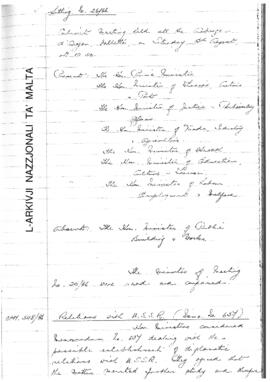 Sitting No. 26/66
Cabinet Meeting held at the Auberge
d'Aragon Valletta, on Saturday, August
at 10.00.
Present: The Hon. Prime Minister
The Hon. Minister of
The Hon. Minister of Justice & Parliamentary
Affairs
The Hon. Minister of Trade, Industry
& Agriculture
The Hon. Minister of Health
The Hon. Minister of Education,
Culture & Tourism
The Hon. Minister of Labour
Employment & Welfare
Absent: The Hon. Minister of Public
Building & Works
The Minutes of Meeting
No. 25/66 were read and confirmed.
L-ARKIVJI NAZZJONALI TA' MALTA
Relations with U.S.S.R. (Memo. No. 657)
Hon. Ministers considered
Memorandum No. 657 dealing with the
possible establishment of diplomatic
relations with U.S.S.R. They agreed that
the matter merited further study and